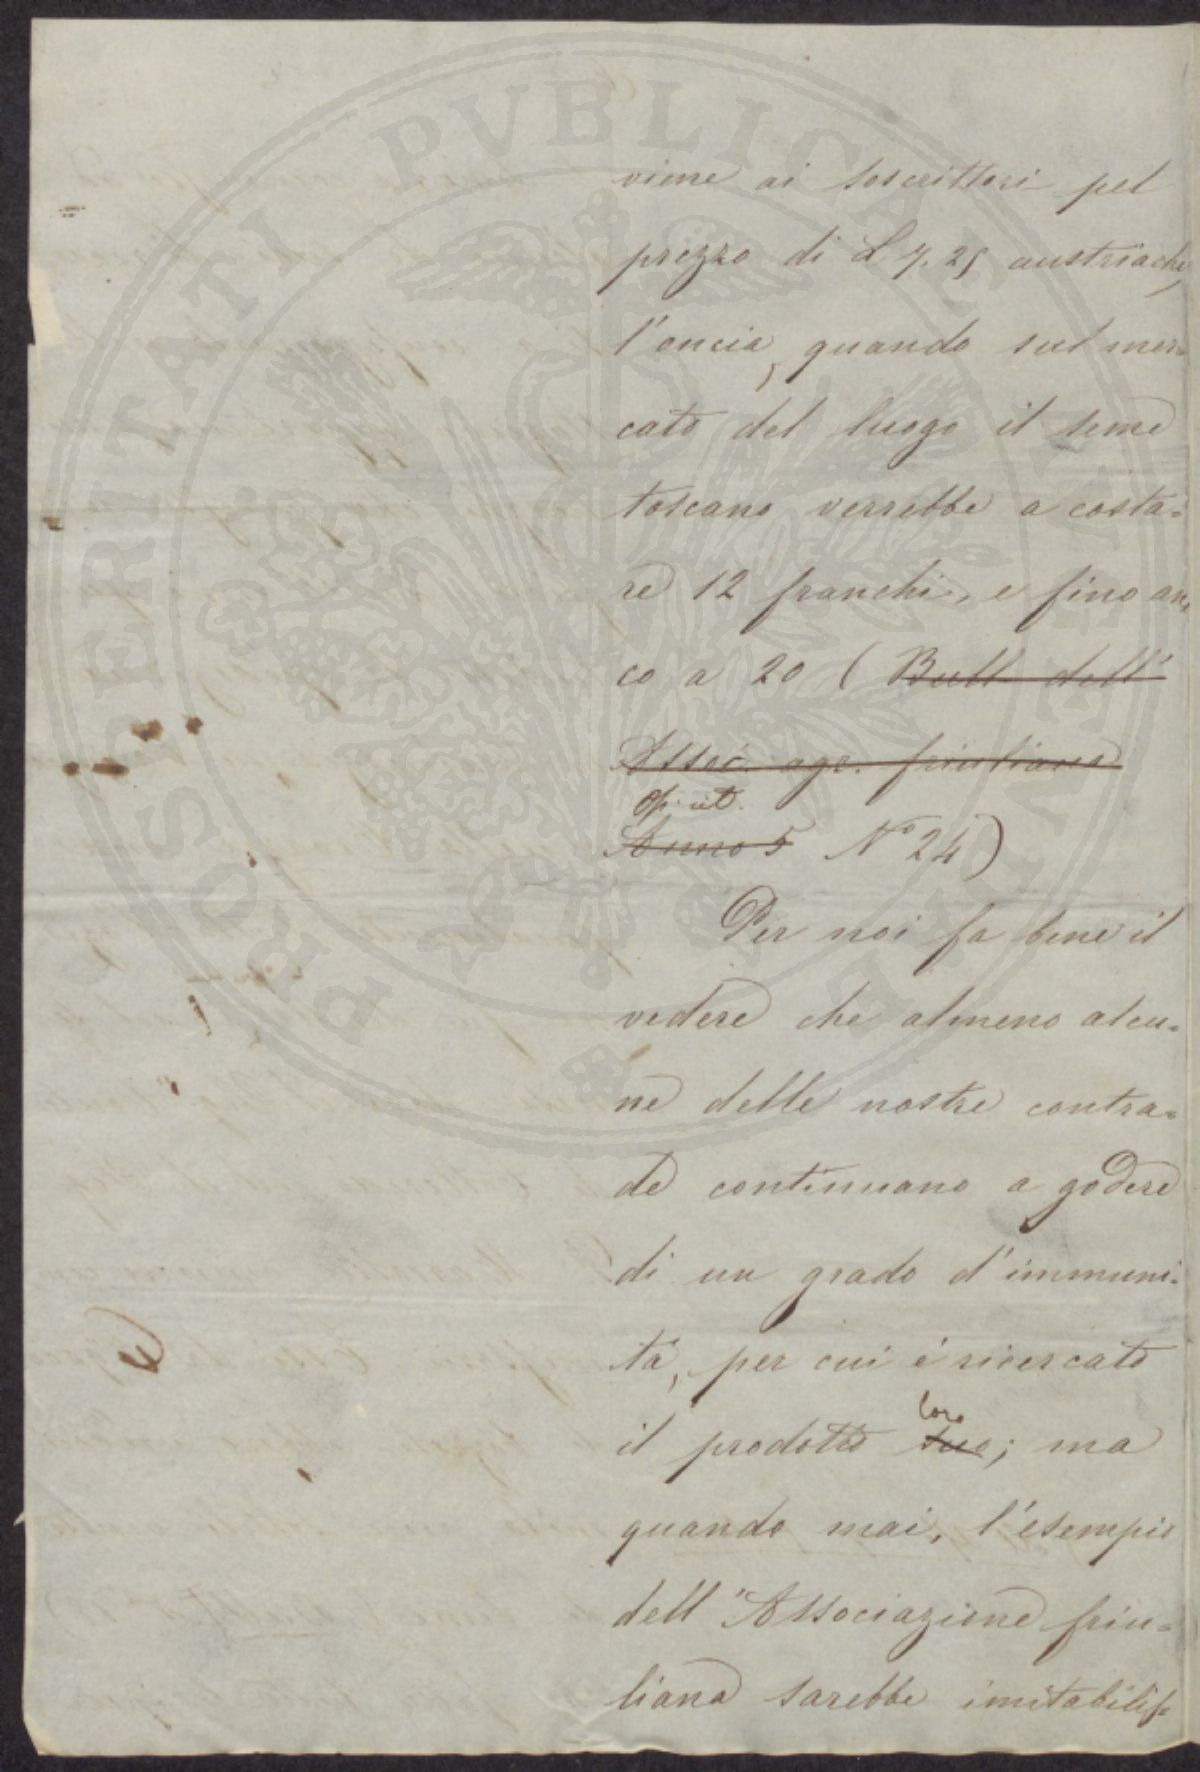 vime ai soscrittori pel
prezzo di L 7.25 austriache
l'oncia, quando sul mer=
cato del luogo il seme
toscano verrebbe a costa=
re 12 franchi, e fino an=
co a 20 ( Bull. dell'
Assoc. agr. friuliana
op. cit.
Anno 5 N° 24)
Per noi fa bene il
vedere che almeno alcu=
ne delle nostre contra=
de continuano a godere
di un grado d'immuni=
tà, per cui é ricercato
loro
il prodotto suo; ma
quando mai, l'esempio
dell'Associazione friu=
liana sarebbe imitabiliss
PROSPERITATI PVBLICAE